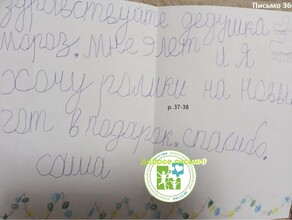 Письмо 36
здравствуйте дедушка
мороз. мне 9 лет и я
хочу ролики на новый
гот в подарок. спасибо.
р. 37-38
саша